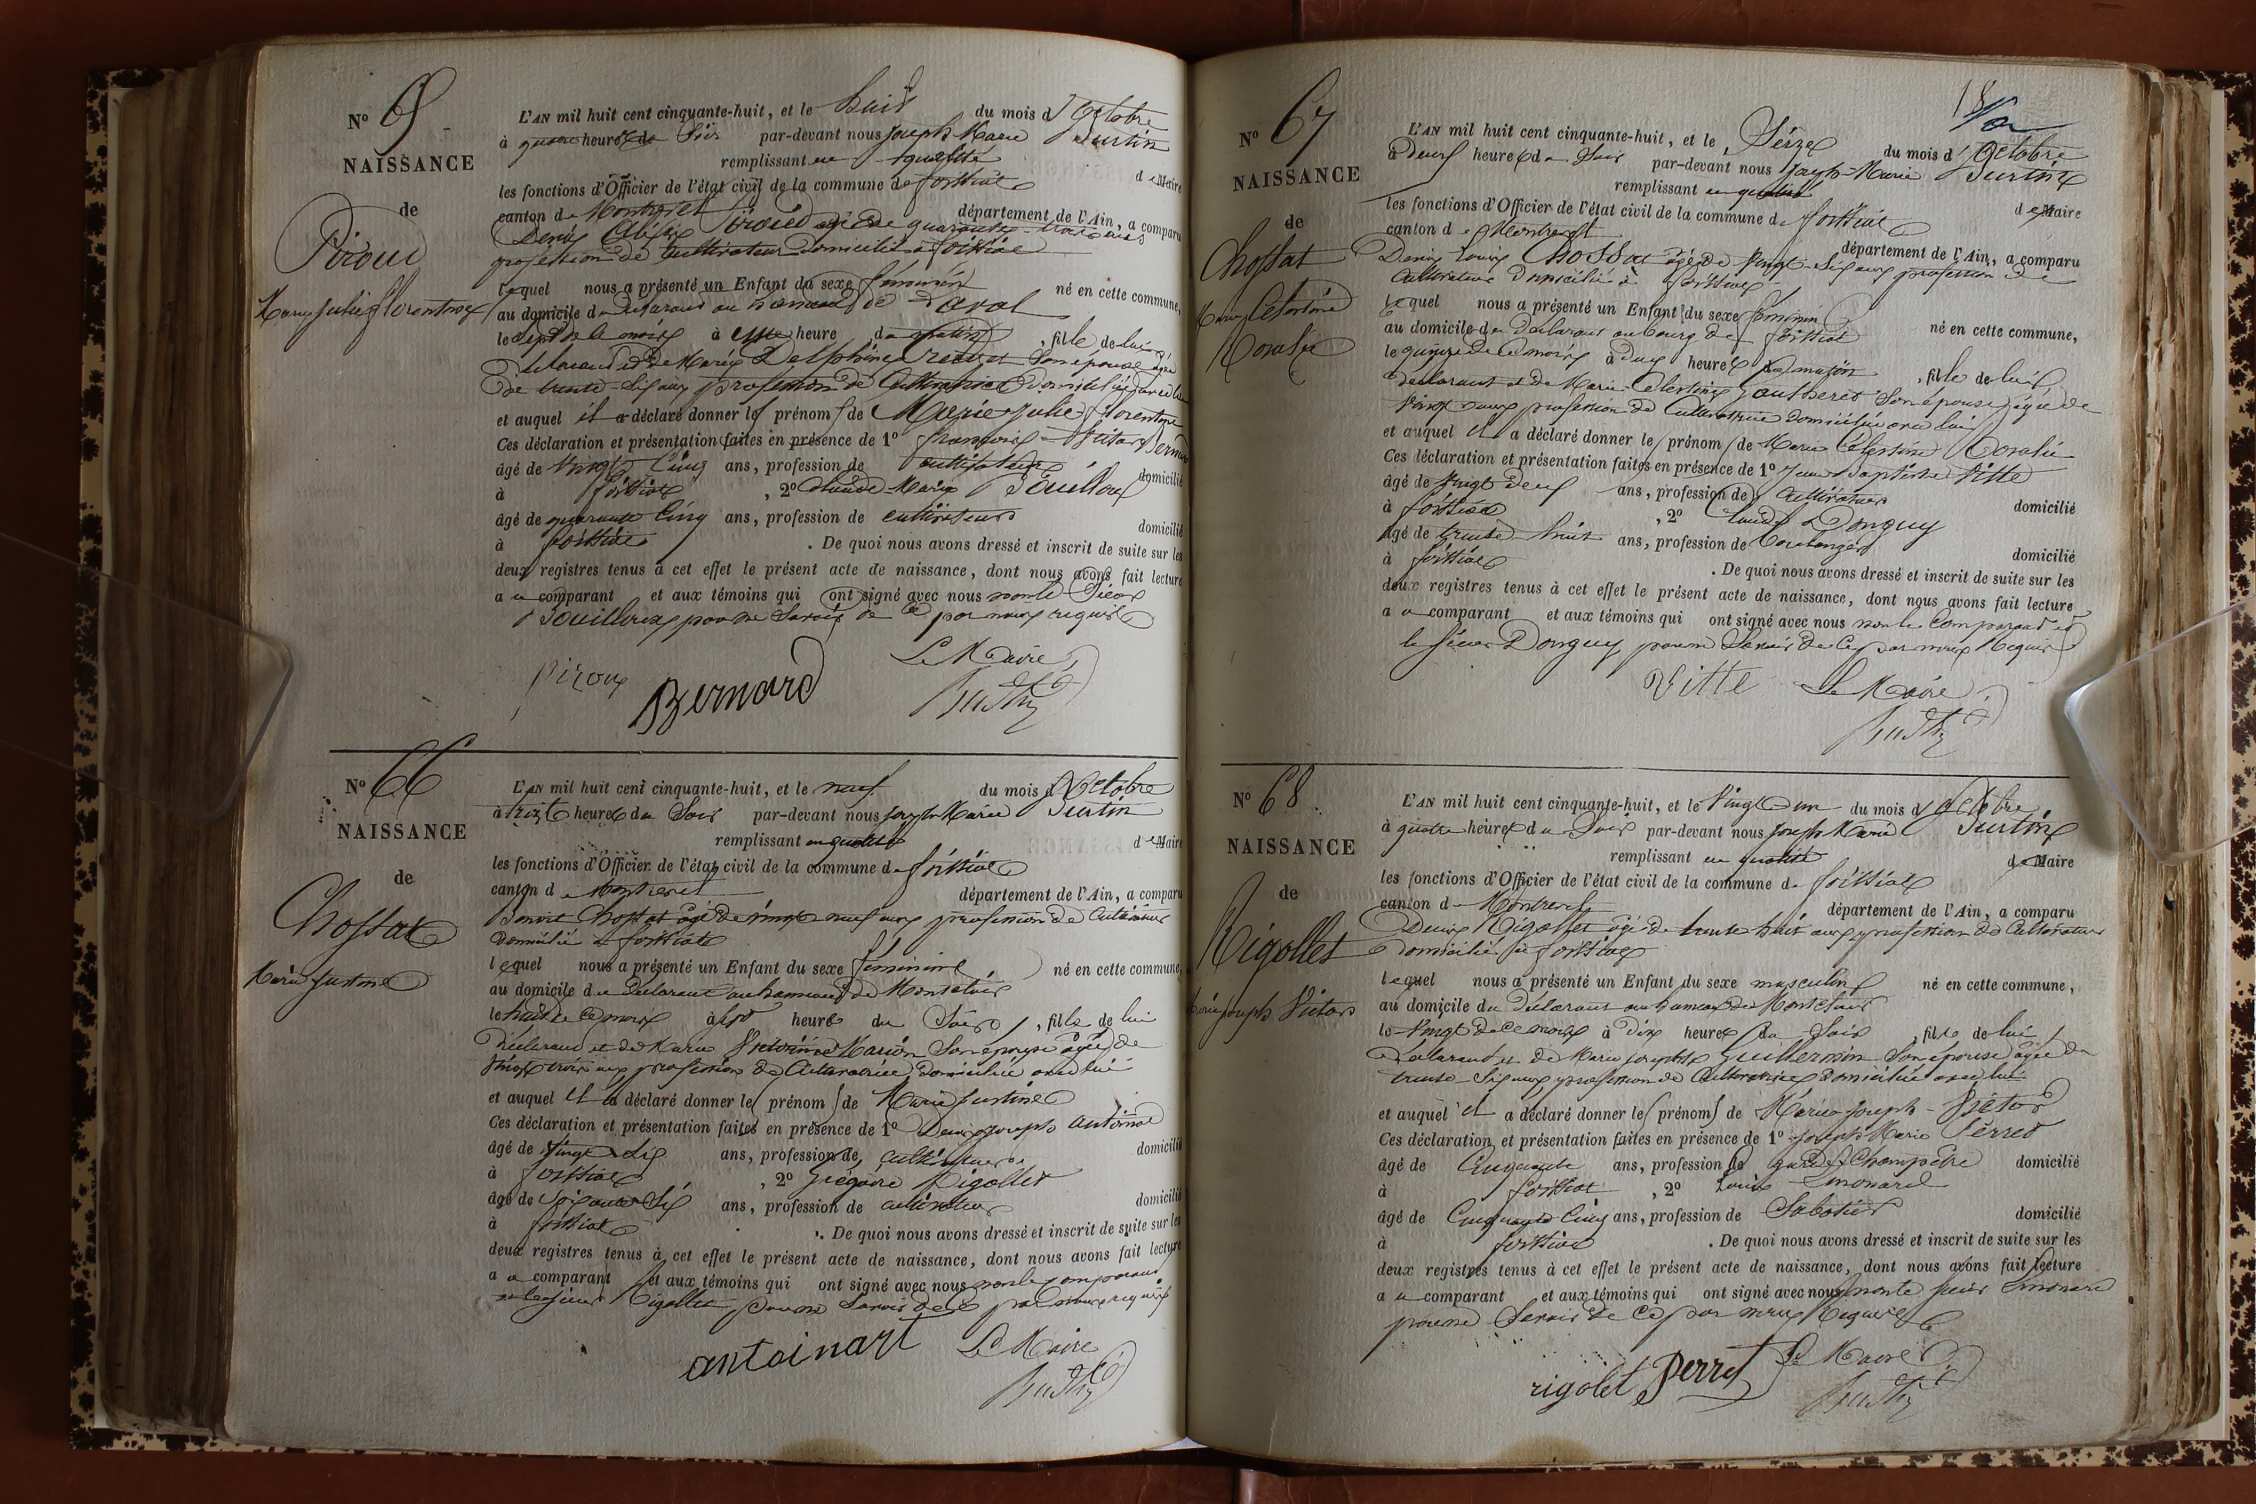 No 65
NAISSANCE
de
Piroud
Marie Julie Florentine
L'AN mil huit cent cinquante-huit, et le huit du mois d'Octobre
à quatre heures du Soir par-devant nous Joseph Marie Burtin
remplissant en qualité de Maire
les fonctions d'Officier de l'état civil de la commune de foissiat
canton de Montrevel département de l'Ain, a comparu
Denis Piroud âgé de quarante-trois ans
profession de Cultivateur domicilié à foissiat
lequel nous a présenté un Enfant du sexe féminin né en cette commune,
au domicile du déclarant au hameau de
le sept de ce mois à heure du matin, fille de lui
déclarant et de Marie Delphine son épouse âgée
de trente-six ans profession de Cultivatrice domiciliée avec lui
et auquel il a déclaré donner les prénoms de Marie Julie florentine
Ces déclaration et présentation faites en présence de 1° françois Victor Bernard
âgé de Vingt Cinq ans, profession de cultivateur domicilié
à foissiat, 2° Claude Marie Bouilloux
âgé de quarante Cinq ans, profession de cultivateur domicilié
à foissiat. De quoi nous avons dressé et inscrit de suite sur les
deux registres tenus à cet effet le présent acte de naissance, dont nous avons fait lecture
au comparant et aux témoins qui ont signé avec nous non le Sieur
Bouilloux pour ne Savoir de ce par nous requis
Le Maire
piroux Bernard Burtin
No 66
NAISSANCE
de
Chossat
Marie Justine
L'AN mil huit cent cinquante-huit, et le neuf du mois d'Octobre
à sept heures du Soir par-devant nous Joseph Marie Burtin
remplissant en qualité de Maire
les fonctions d'Officier de l'état civil de la commune de foissiat
canton de Montrevel département de l'Ain, a comparu
Benoit Chossat âgé de vingt neuf ans profession de Cultivateur
domicilié à foissiat
lequel nous a présenté un Enfant du sexe féminin né en cette commune,
au domicile du déclarant au hameau de Montclair
le huit de ce mois à sept heures du Soir, fille de lui
Déclarant et de Marie Victorine Marion Son épouse âgée de
Vingt trois ans profession de Cultivatrice domiciliée avec lui
et auquel il a déclaré donner les prénoms de Marie Justine
Ces déclaration et présentation faites en présence de 1° Denis Joseph Antoinat
âgé de Vingt Six ans, profession de cultivateur domicilié
à foissiat, 2° Grégoire Rigollet
âgé de Soixante Six ans, profession de cultivateur domicilié
à foissiat. De quoi nous avons dressé et inscrit de suite sur les
deux registres tenus à cet effet le présent acte de naissance, dont nous avons fait lecture
au comparant et aux témoins qui ont signé avec nous non le Comparant
et le sieur Rigollet pour ne Savoir de ce par nous requis
antoinart Le Maire
Burtin
No 67
NAISSANCE
de
Chossat
Marie Célestine
Rosalie
L'AN mil huit cent cinquante-huit, et le Seize du mois d'Octobre
à Deux heures du Soir par-devant nous Joseph-Marie Burtin
remplissant en qualité de Maire
les fonctions d'Officier de l'état civil de la commune de foissiat
canton de Montrevel département de l'Ain, a comparu
Denis Louis Chossat âgé de Vingt-Six ans profession de
Cultivateur domicilié à foissiat
lequel nous a présenté un Enfant du sexe féminin né en cette commune,
au domicile du déclarant au bourg de foissiat
le quinze de ce mois à heures du matin, fille de lui
déclarant et de Marie-Célestine Gautheret Son épouse âgée de
Vingt ans profession de Cultivatrice domiciliée avec lui
et auquel il a déclaré donner les prénoms de Marie Célestine Rosalie
Ces déclaration et présentation faites en présence de 1° Jean Baptiste Vitte
âgé de Vingt deux ans, profession de Cultivateur domicilié
à foissiat, 2° Claude Donguy
âgé de trente huit ans, profession de boulanger domicilié
à foissiat. De quoi nous avons dressé et inscrit de suite sur les
deux registres tenus à cet effet le présent acte de naissance, dont nous avons fait lecture
au comparant et aux témoins qui ont signé avec nous non le Comparant et
le Sieur Donguy pour ne Savoir de ce par nous Requis
Vitte Le Maire
Burtin
No 68
NAISSANCE
de
Rigollet
Marie Joseph Victor
L'AN mil huit cent cinquante-huit, et le Vingt un du mois d'Octobre
à quatre heures du Soir par-devant nous Joseph Marie Burtin
remplissant en qualité de Maire
les fonctions d'Officier de l'état civil de la commune de foissiat
canton de Montrevel département de l'Ain, a comparu
Denis Rigollet âgé de trente huit ans profession de Cultivateur
domicilié à foissiat
lequel nous a présenté un Enfant du sexe masculin né en cette commune,
au domicile du déclarant au hameau de Montclair
le Vingt de ce mois à Dix heures du Soir, fils de lui
Déclarant et de Marie Josephte Guillermin Son épouse âgée de
trente-Six ans profession de Cultivatrice domiciliée avec lui
et auquel il a déclaré donner les prénoms de Marie Joseph-Victor
Ces déclaration et présentation faites en présence de 1° Joseph Marie Perret
âgé de Cinquante ans, profession de garde Champêtre domicilié
à foissiat, 2° Louis Simonard
âgé de Cinquante Cinq ans, profession de Sabotier domicilié
à foissiat. De quoi nous avons dressé et inscrit de suite sur les
deux registres tenus à cet effet le présent acte de naissance, dont nous avons fait lecture
au comparant et aux témoins qui ont signé avec nous non le Sieur Simonard
pour ne Savoir de ce par nous Requis
rigolet Perret Le Maire
Burtin